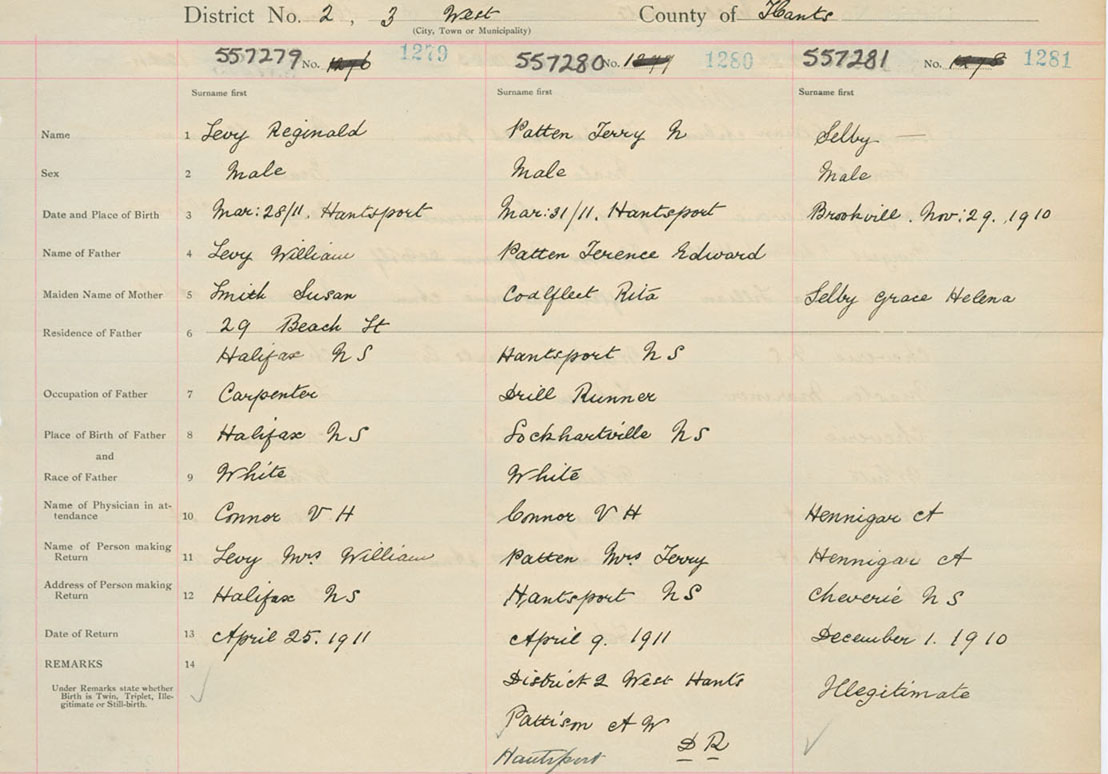 District No. 2, 3 West County of Hants
(City, Town or Municipality)
557279 No. 1276 1279 557280 No. 1277 1280 557281 No. 1278 1281
Surname first Surname first Surname first
Name 1 Levy Reginald Patten Terry N Selby —
Sex 2 Male Male Male
Date and Place of Birth 3 Mar: 28/11. Hantsport Mar: 31/11. Hantsport Brookvill. Nov: 29. 1910
Name of Father 4 Levy William Patten Terence Edward
Maiden Name of Mother 5 Smith Susan Coalfleet Rita Selby Grace Helena
Residence of Father 6 29 Beach St
Halifax NS Hantsport NS
Occupation of Father 7 Carpenter Drill Runner
Place of Birth of Father 8 Halifax NS Lockhartville NS
and
Race of Father 9 White White
Name of Physician in at-
tendance 10 Connor V H Connor V H Hennigar A
Name of Person making
Return 11 Levy Mrs William Patten Mrs Terry Hennigar A
Address of Person making
Return 12 Halifax NS Hantsport NS Cheverie NS
Date of Return 13 April 25. 1911 April 9. 1911 December 1. 1910
REMARKS 14
Under Remarks state whether
Birth is Twin, Triplet, Ille-
gitimate or Still-birth.
District 2 West Hants Illegitimate
Pattison A W
Hantsport D R